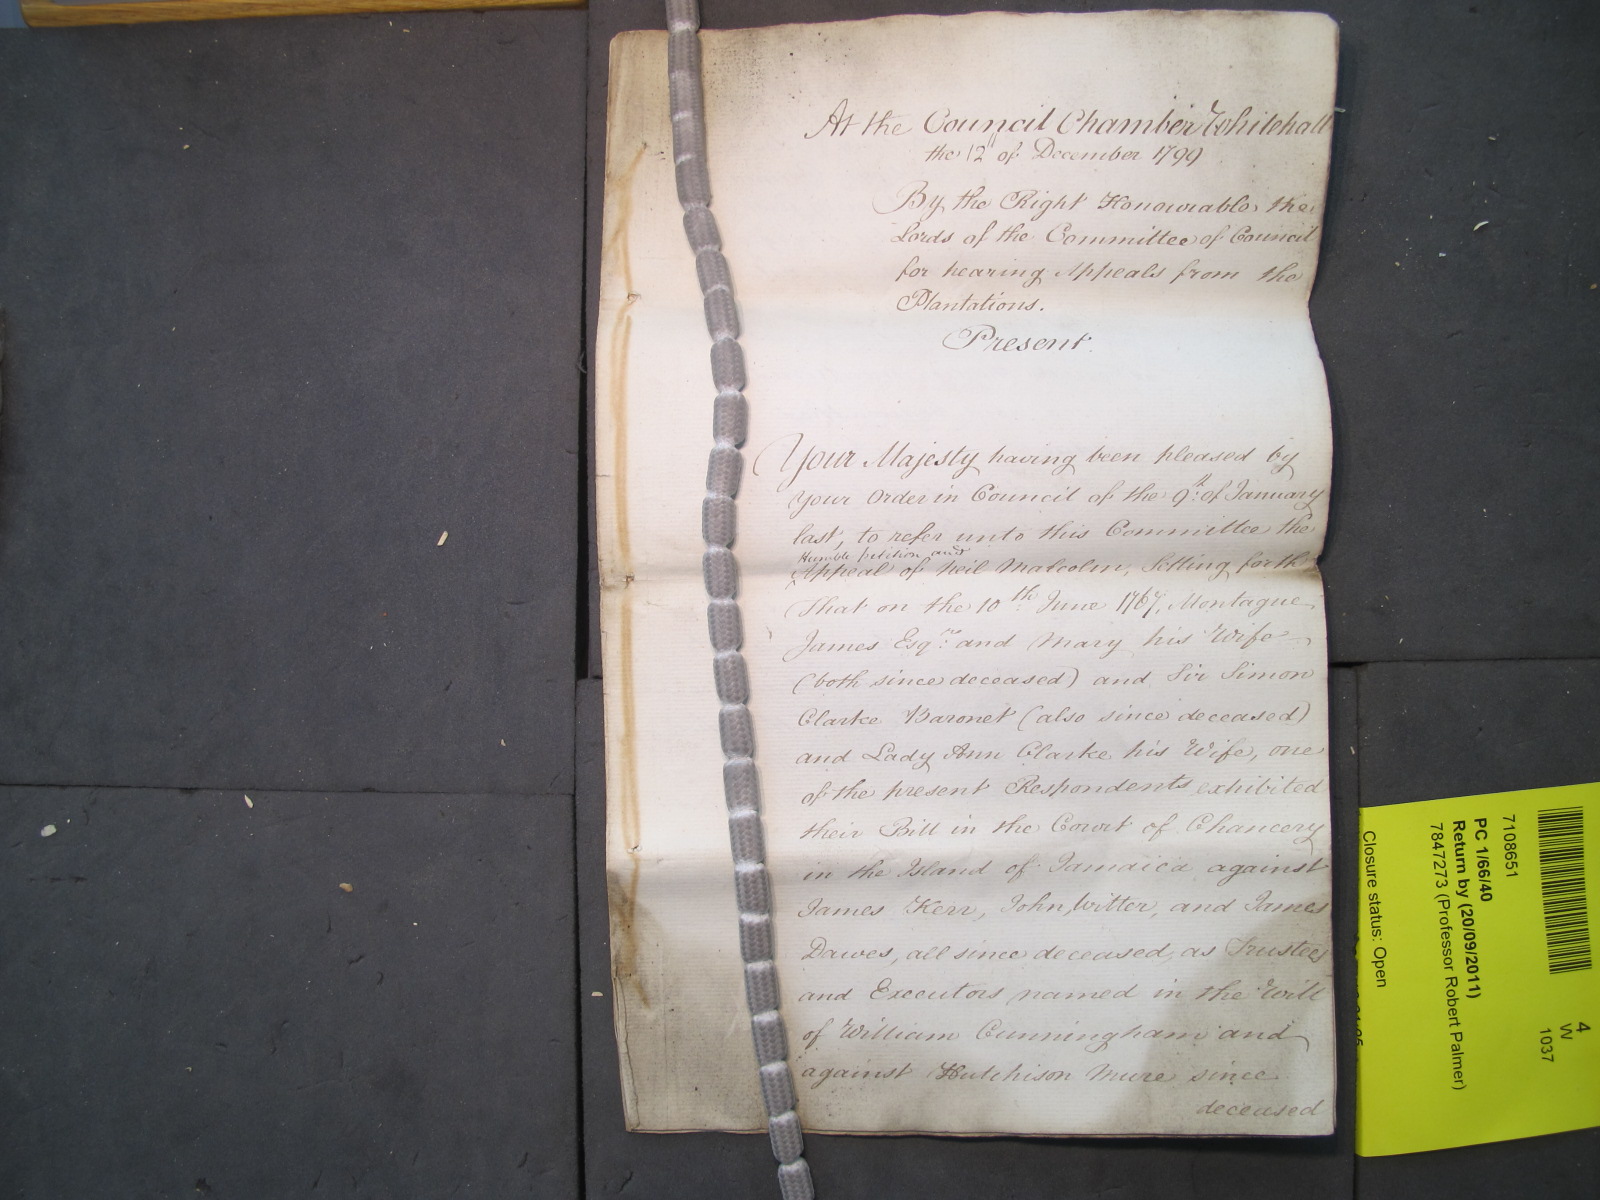 At the Council Chamber Whitehall
the 12 of December 1799
By the Right Honourable the
Lords of the Committee of Council
for hearing Appeals from the
Plantations.
Present.
Your Majesty having been pleased by
Your Order in Council of the 9th: of January
last, to refer unto this Committee the
Humble petition and
Appeal of Neil Malcolm, Setting forth
That on the 10th June 1767, Montague
James Esqre: and Mary his Wife
(both since deceased) and Sir Simon
Clarke Baronet (also since deceased)
and Lady Ann Clarke his Wife, one
of the present Respondents exhibited
their Bill in the Court of Chancery
in the Island of Jamaica against
James Kerr, John Witter, and James
Dawes, all since deceased, as Trustees
and Executors named in the Will
of William Cunningham and
against Hutchison Mure since
deceased
4
W
1037
7108651
PC 1/66/40
Return by (20/09/2011)
7847273 (Professor Robert Palmer)
Closure status: Open